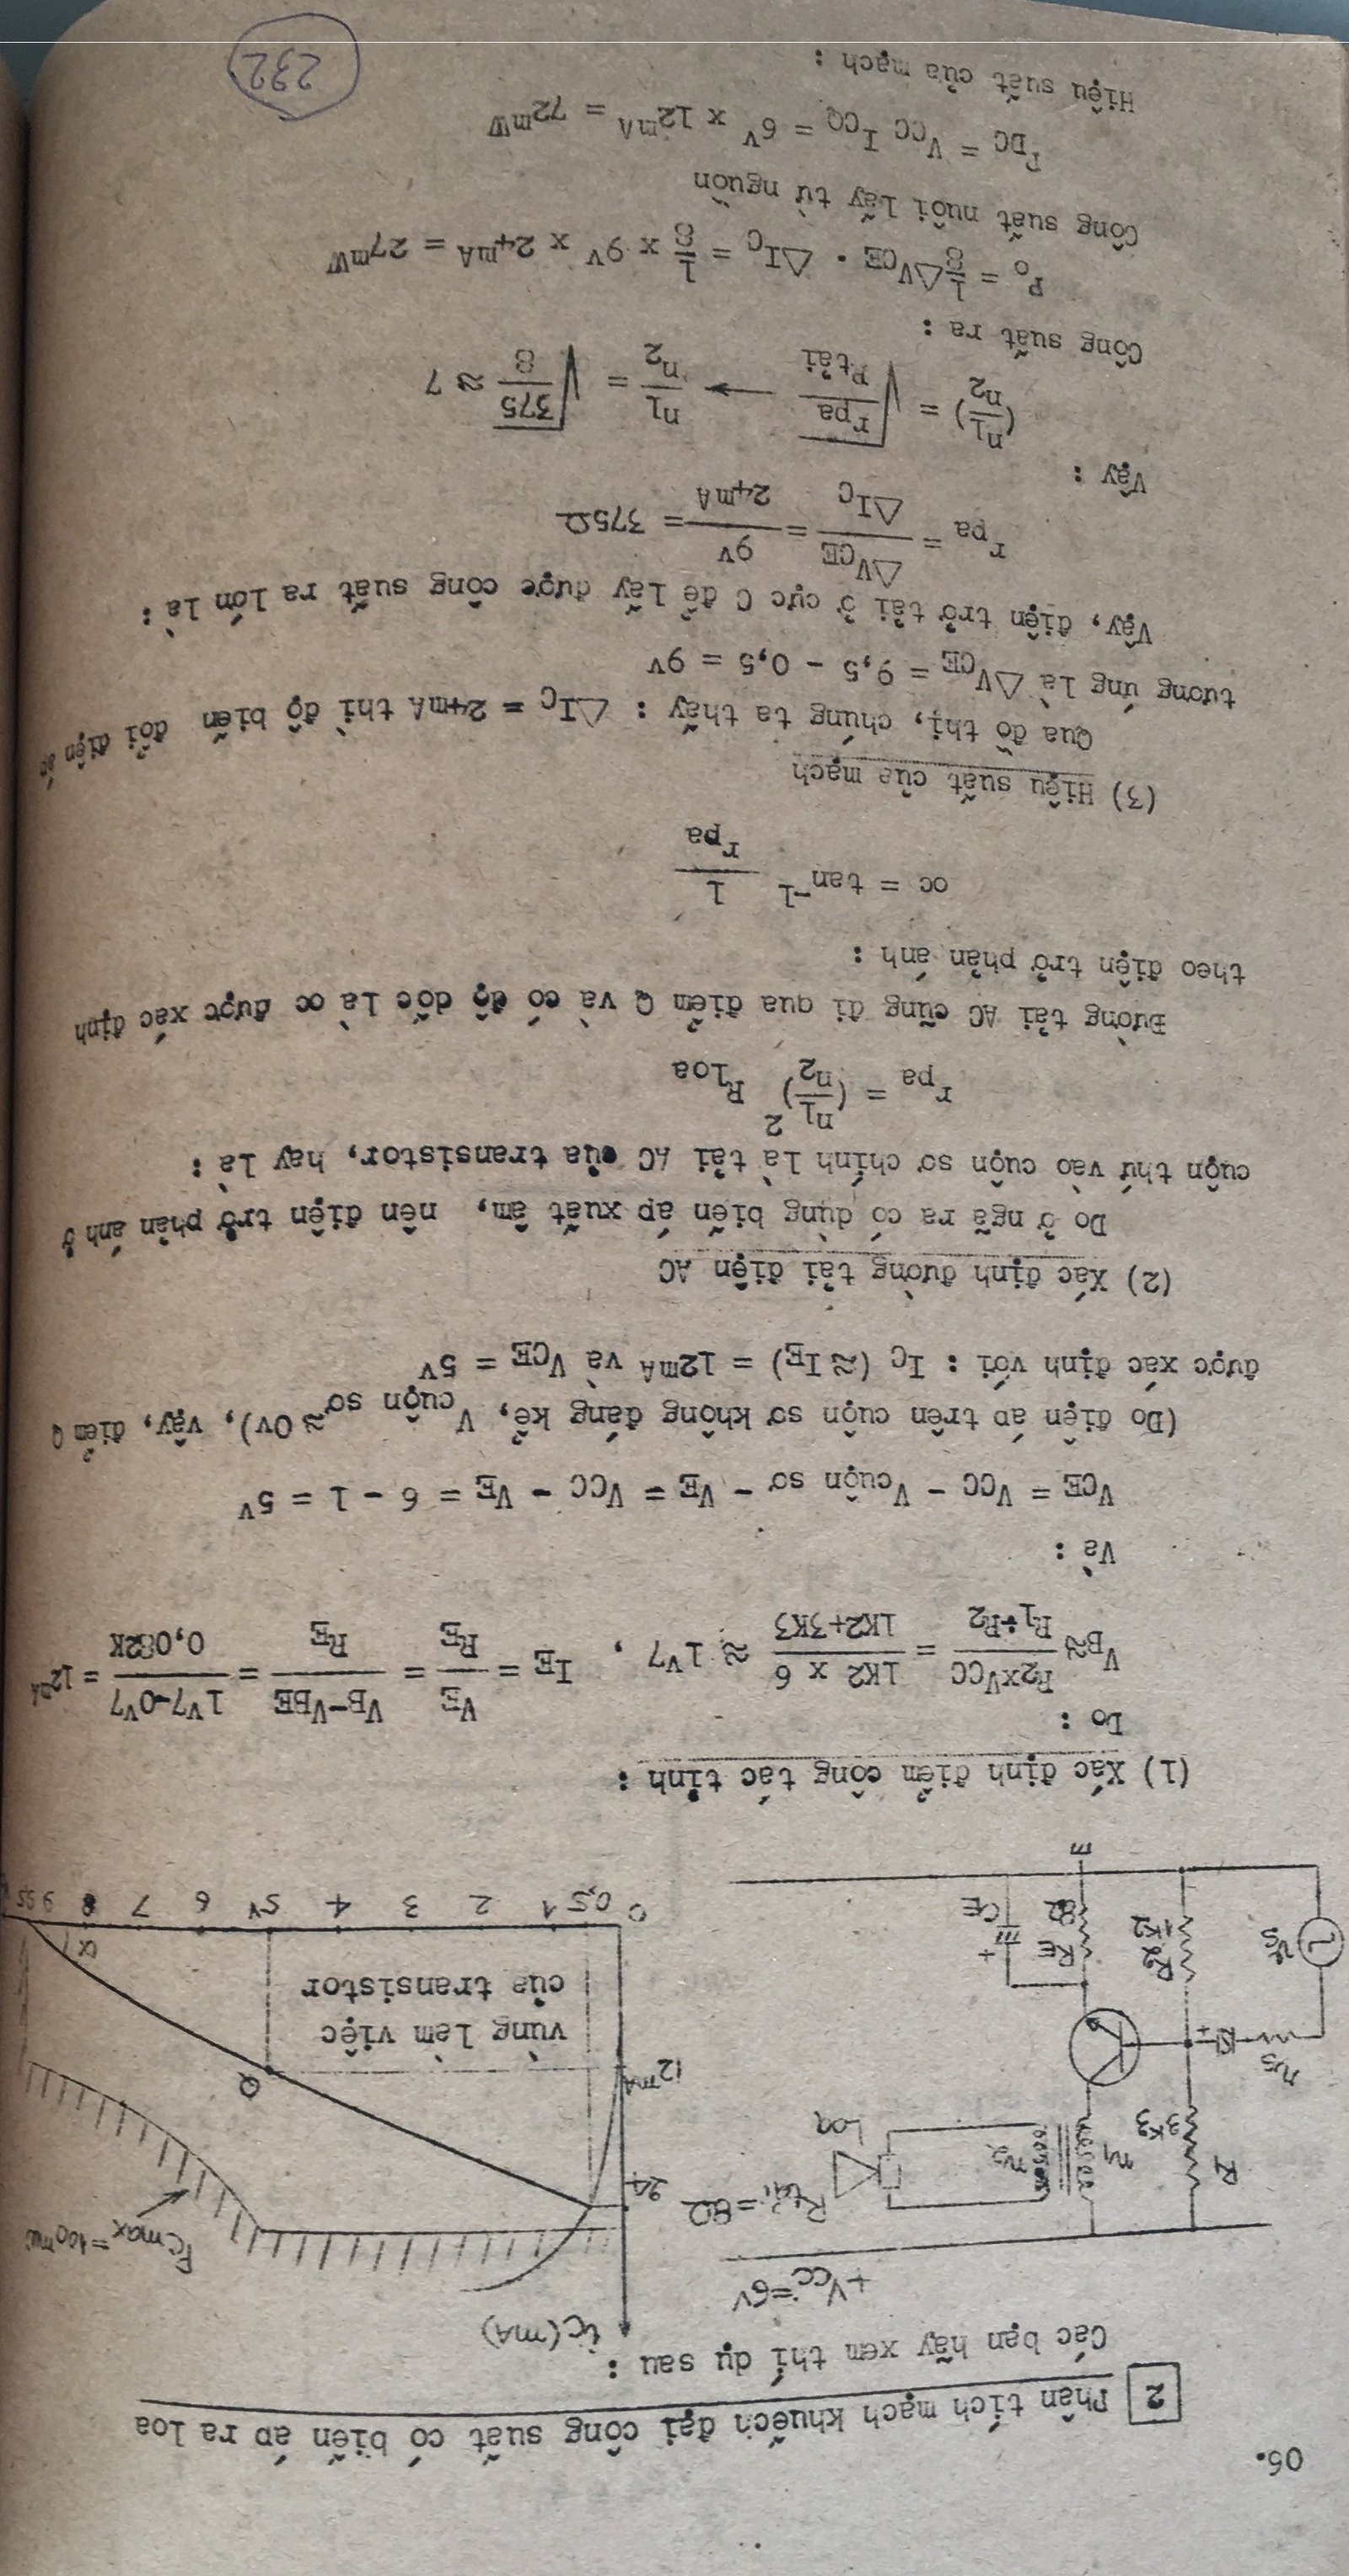 06.
2 Phân tích mạch khuếch đại công suất có biến áp ra loa
Các bạn hãy xem thí dụ sau :
+VCC=6V
ic(mA)
PCmax=100mW
R1 3K3
n1 n2
Rtải=8Ω
Loa
rs
vs
R2 1K2
RE 82Ω
CE
24
12mA
Q
vùng làm việc
của transistor
α
0 0,5 1 2 3 4 5V 6 7 8 9 9,5
(1) Xác định điểm công tác tỉnh :
Do :
VB≈ R2xVCC / R1+R2 = 1K2 x 6 / 1K2+3K3 ≈ 1V7 , IE = VE / RE = VB-VBE / RE = 1V7-0V7 / 0,082K = 12mA
Và :
VCE = VCC - Vcuộn sơ - VE = VCC - VE = 6 - 1 = 5V
(Do điện áp trên cuộn sơ không đáng kể, Vcuộn sơ≈0V), vậy, điểm Q
được xác định với : IC (≈IE) = 12mA và VCE = 5V
(2) Xác định đường tải điện AC
Do ở ngã ra có dùng biến áp xuất âm, nên điện trở phản ánh ở
cuộn thứ vào cuộn sơ chính là tải AC của transistor, hay là :
rpa = (n1/n2)² Rloa
Đường tải AC cũng đi qua điểm Q và có độ dốc là ∝ được xác định
theo điện trở phản ánh :
∝ = tan⁻¹ 1 / rpa
(3) Hiệu suất của mạch
Qua đồ thị, chúng ta thấy : △IC = 24mA thì độ biến đổi điện áp
tương ứng là △VCE = 9,5 - 0,5 = 9V
Vậy, điện trở tải ở cực C để lấy được công suất ra lớn là :
rpa = △VCE / △IC = 9V / 24mA = 375Ω
Vậy :
(n1/n2) = √(rpa / Rtải) → n1/n2 = √(375 / 8) ≈ 7
Công suất ra :
Po = 1/8 △VCE . △IC = 1/8 x 9V x 24mA = 27mW
Công suất nuôi lấy từ nguồn
PDC = VCC ICQ = 6V x 12mA = 72mW
Hiệu suất của mạch :
232